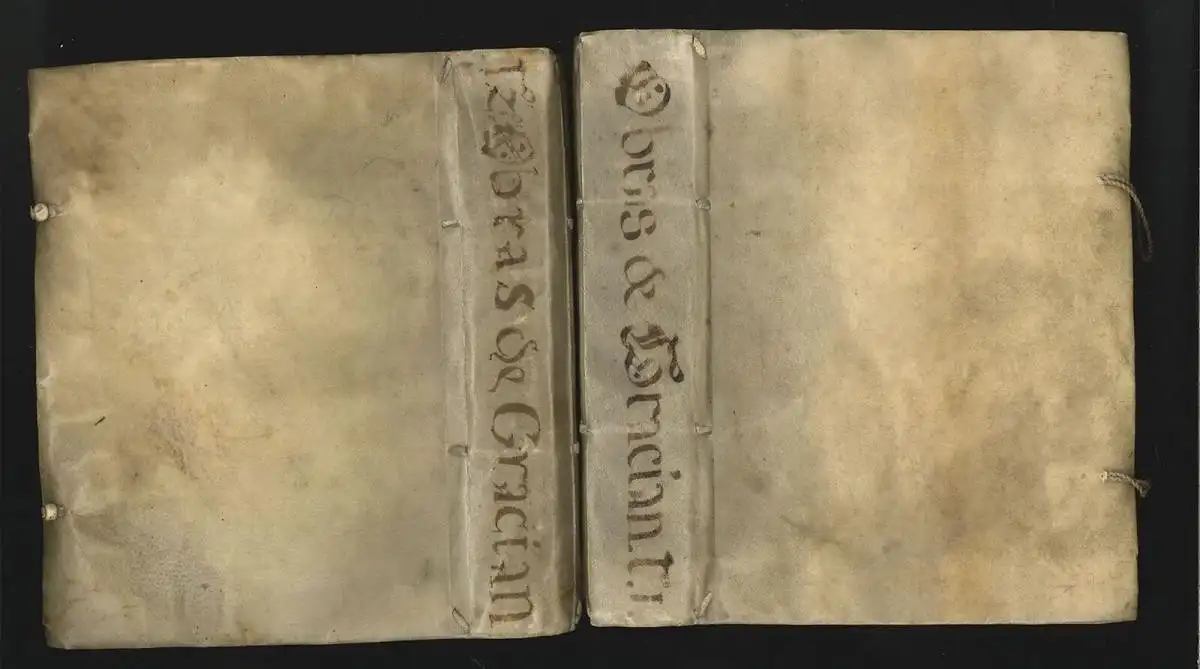 Obras de Gracian
Obras de Gracian t.